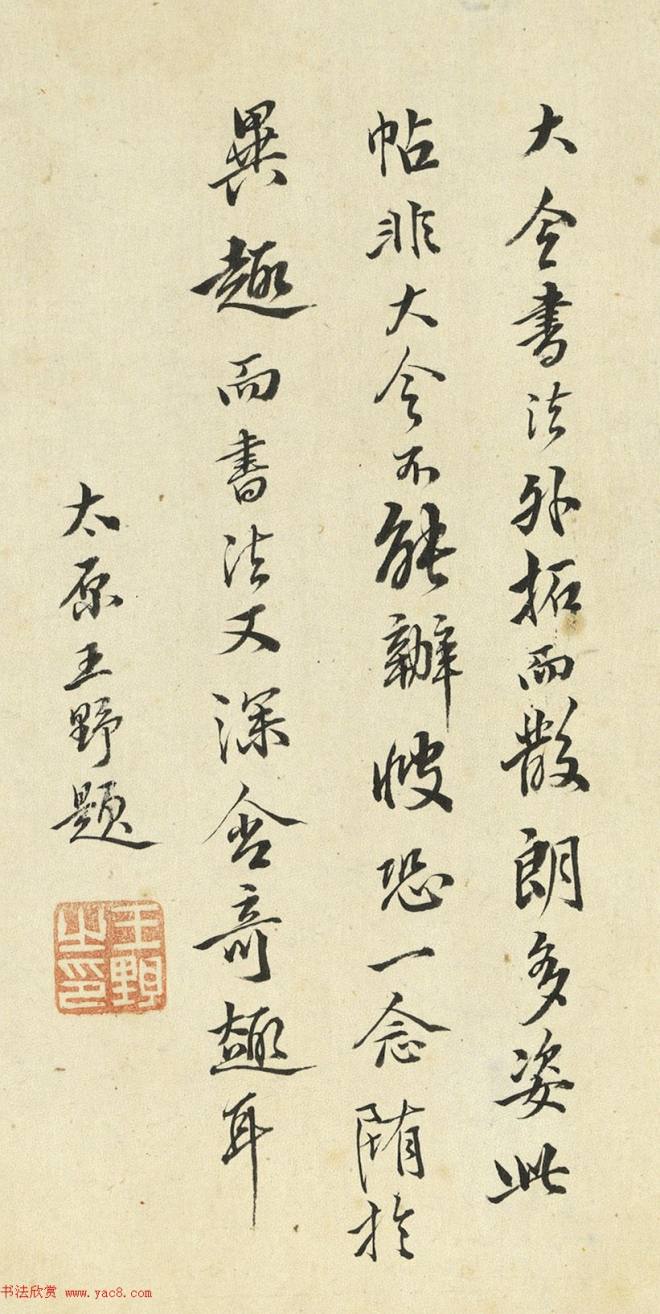 大令書法外拓而散朗多姿此
帖非大令不能辦恐一念陏於
異趣而書法又深含奇趣耳
太原王野題
王野之印
书法欣赏 www.yac8.com